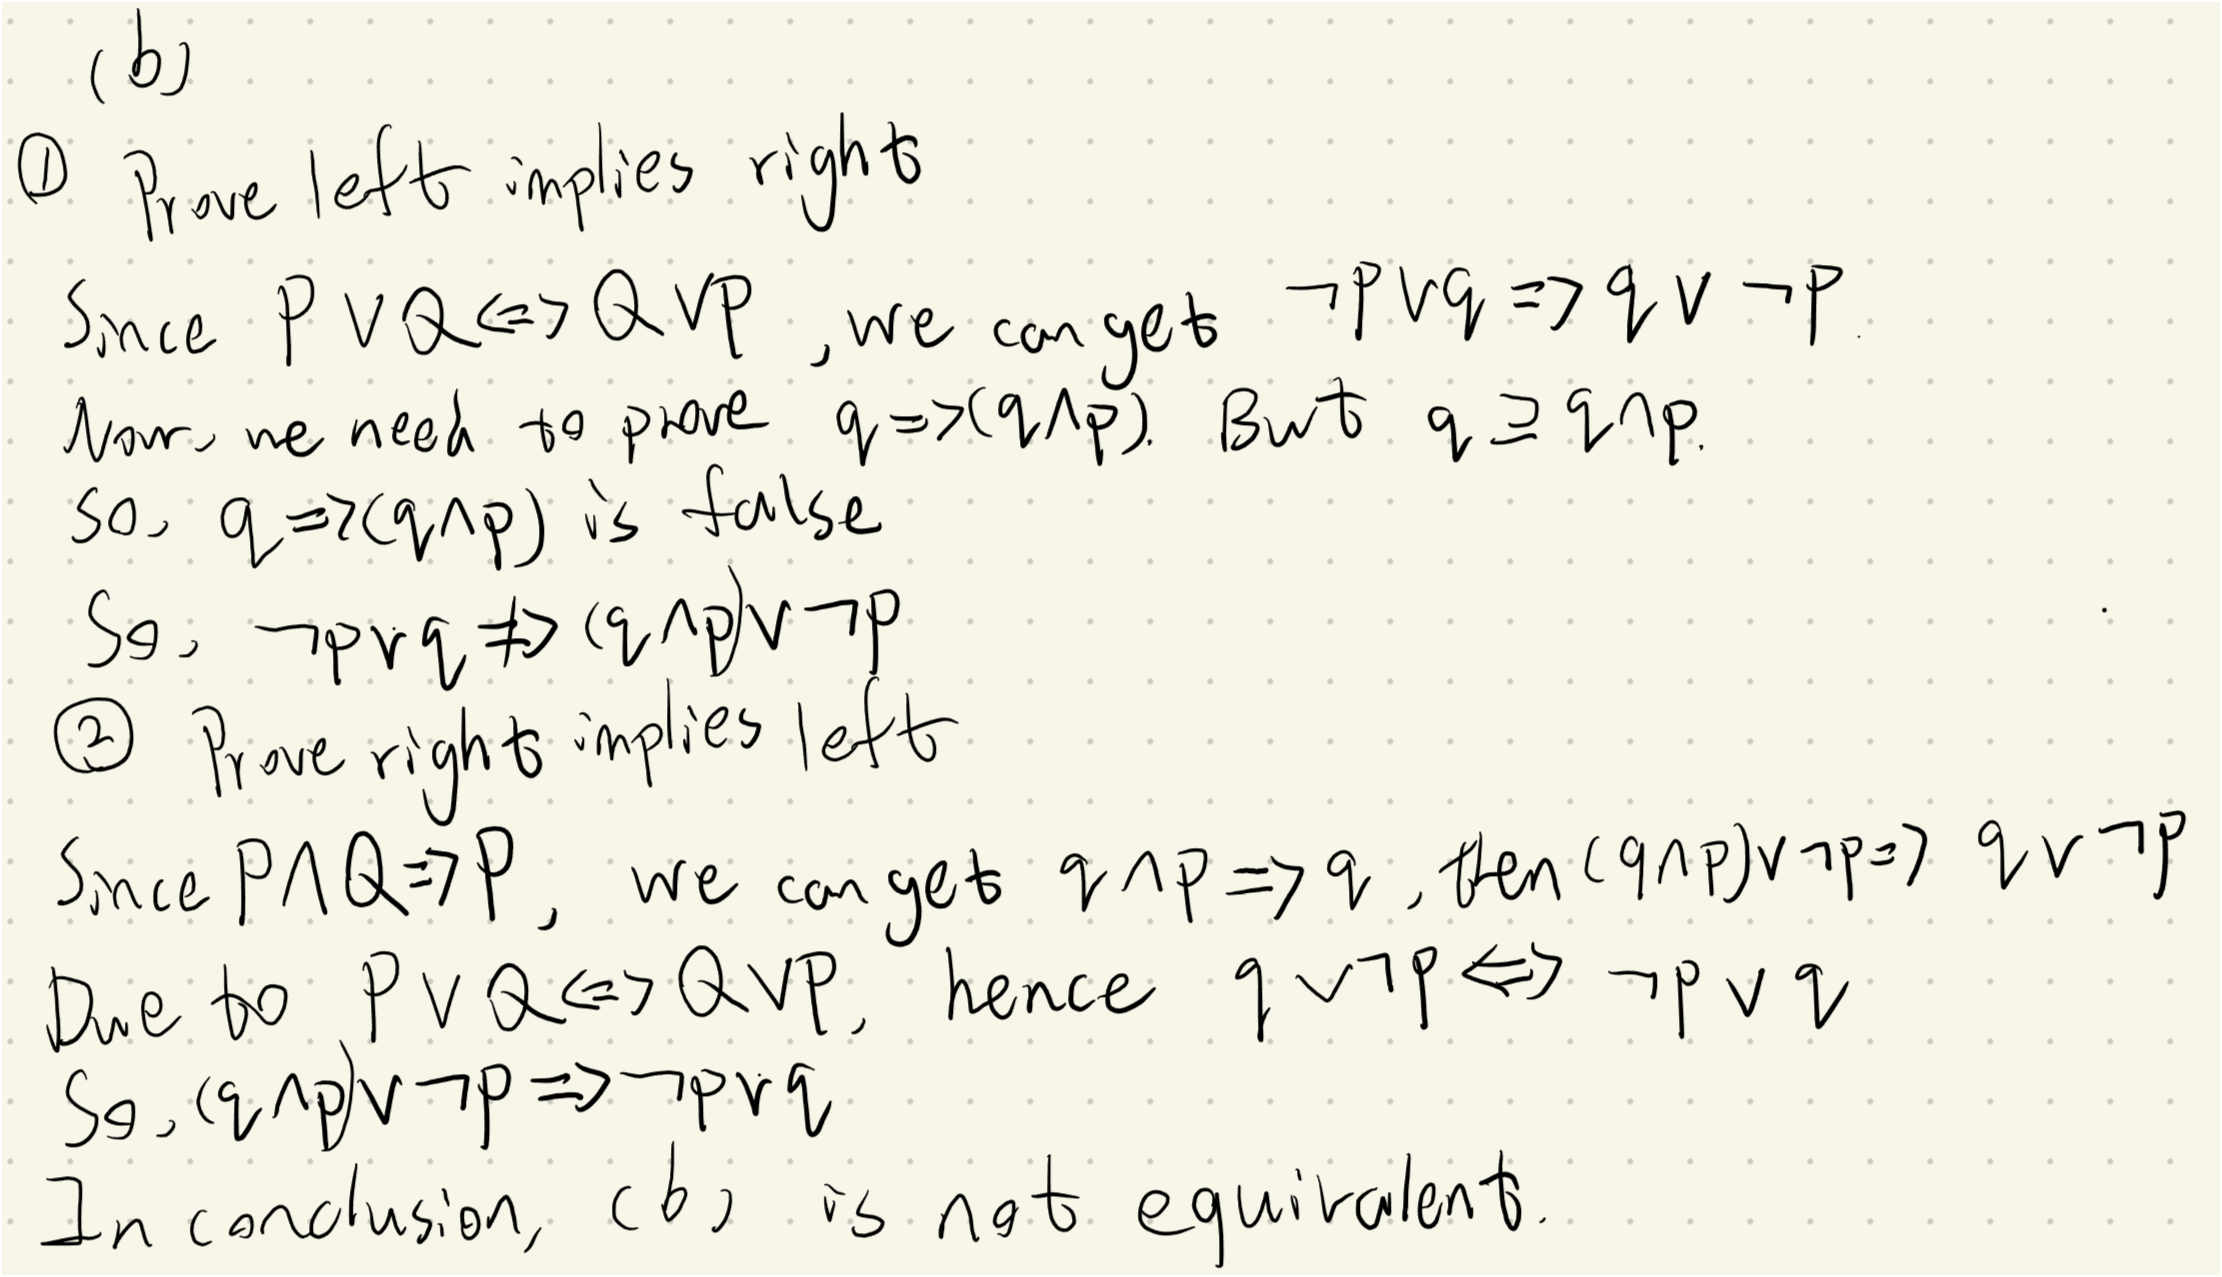 (b)
① Prove left implies right
Since P∨Q<=>Q∨P, we can get ¬p∨q=>q∨¬p.
Now, we need to prove q=>(q∧p). But q⊇q∧p.
So, q=>(q∧p) is false
So, ¬p∨q≠>(q∧p)∨¬p
② Prove right implies left
Since P∧Q=>P, we can get q∧p=>q, then (q∧p)∨¬p=>q∨¬p
Due to P∨Q<=>Q∨P, hence q∨¬p<=>¬p∨q
So, (q∧p)∨¬p=>¬p∨q
In conclusion, (b) is not equivalent.